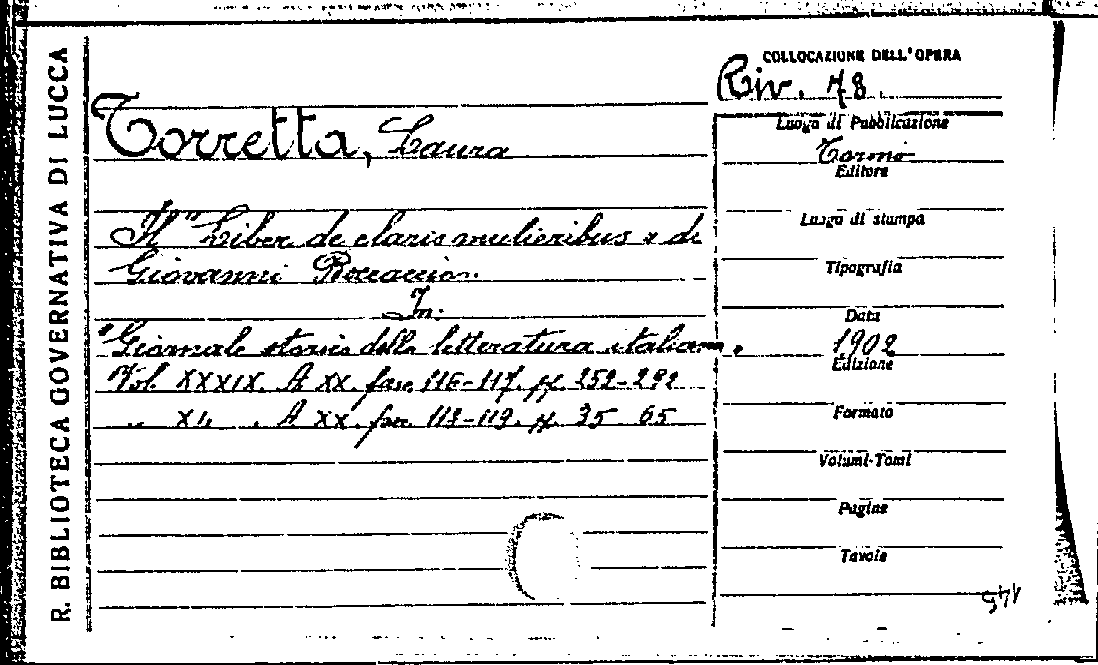 R. BIBLIOTECA GOVERNATIVA DI LUCCA
COLLOCAZIONE DELL'OPERA
Riv. 78.
Torretta, Laura
Il "Liber de claris mulieribus" di
Giovanni Boccaccio.
In:
"Giornale storico della letteratura italiana".
Vol. XXXIX. A XX. fasc. 116-117. pp. 252-292
" XL. A XX. fasc. 118-119. pp. 35-65
Luogo di Pubblicazione
Torino
Editore
Luogo di stampa
Tipografia
Data
1902
Edizione
Formato
Volumi-Tomi
Pagine
Tavole
145